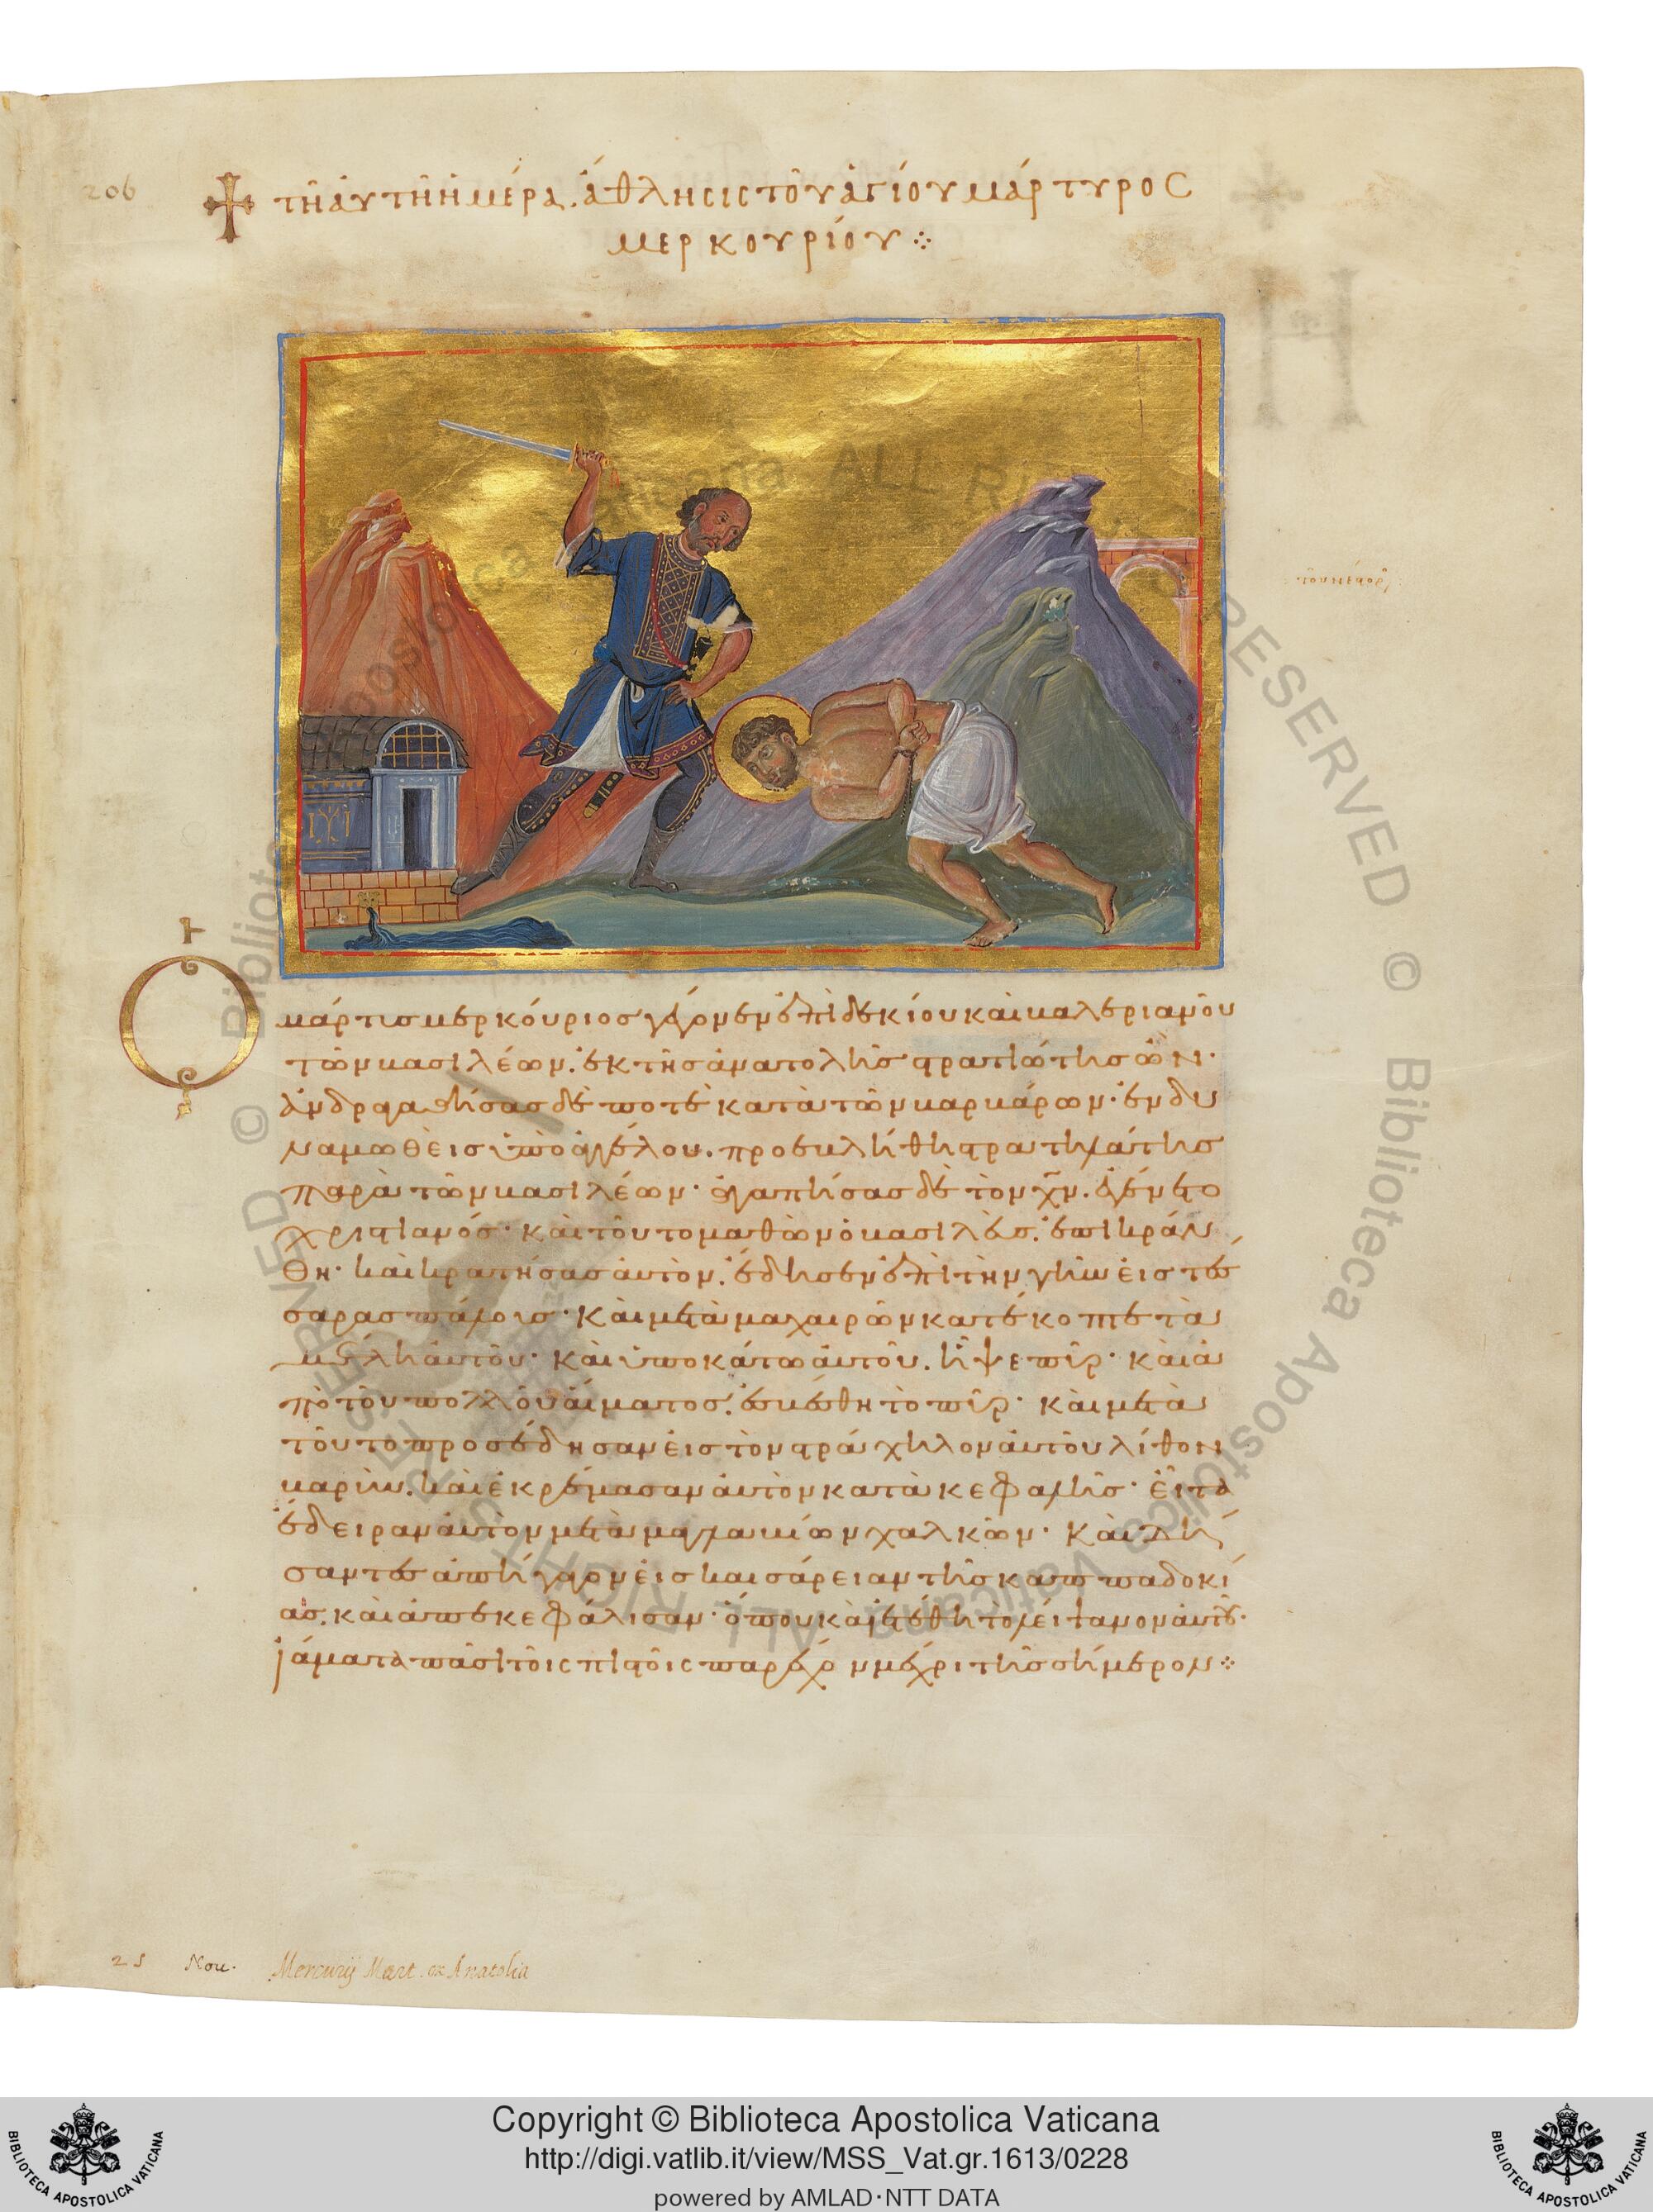 206
τῆ ἀυτῆ ἡμέρα. ἄθλησις τοῦ ἁγίου μάρτυρος
μερκουρίου
Ὁ μάρτυς μερκούριος γέγονεν ἐπὶ δεκίου καὶ βαλεριανοῦ
τῶν βασιλέων. ἐκ τῆς ἀνατολῆς στρατιώτης ὢν·
ἀνδραγαθήσας δέ ποτε κατὰ τῶν βαρβάρων· ἐνδυ
ναμωθεὶς ὑπὸ ἀγγέλου. προεβλήθη στρατηλάτης
παρὰ τῶν βασιλέων· ἀγαπήσας δὲ τὸν χν. ἐγένετο
χριστιανός· καὶ τοῦτο μαθὼν ὁ βασιλεύς. ἐπικράν
θη· καὶ κρατήσας ἀυτὸν. ἔδησεν ἐπὶ τὴν γῆν εἰς τέσ
σαρας πάλους· καὶ μετὰ μαχαιρῶν κατέκοπτε τὰ
μέλη ἀυτοῦ· καὶ ὑποκάτω ἀυτοῦ. ἧψε πῦρ· καὶ ἀ
πὸ τοῦ πολλοῦ ἁίματος. ἐσβέσθη τὸ πῦρ· καὶ μετὰ
τοῦτο προσέδησαν εἰς τὸν τράχηλον ἀυτοῦ λίθον
βαρὺν. καὶ ἐκρέμασαν ἀυτὸν κατὰ κεφαλῆς· εἶτα
ἔδειραν ἀυτὸν μετὰ μαγλαβίων χαλκῶν· καὶ δή
σαντες ἀπήγαγον εἰς καισάρειαν τῆς καππαδοκί
ας. καὶ ἀπεκεφάλισαν· ὅπου καὶ ἐτέθη τὸ λείψανον ἀυτοῦ·
ἰάματα πᾶσι τοῖς πιστοῖς παρέχον μέχρι τῆς σήμερον
25 Nou. Mercurij Mart. ex Anatolia
© Biblioteca Apostolica Vaticana ALL RIGHTS RESERVED
Copyright © Biblioteca Apostolica Vaticana
http://digi.vatlib.it/view/MSS_Vat.gr.1613/0228
powered by AMLAD·NTT DATA
BIBLIOTECA APOSTOLICA VATICANA
BIBLIOTECA APOSTOLICA VATICANA